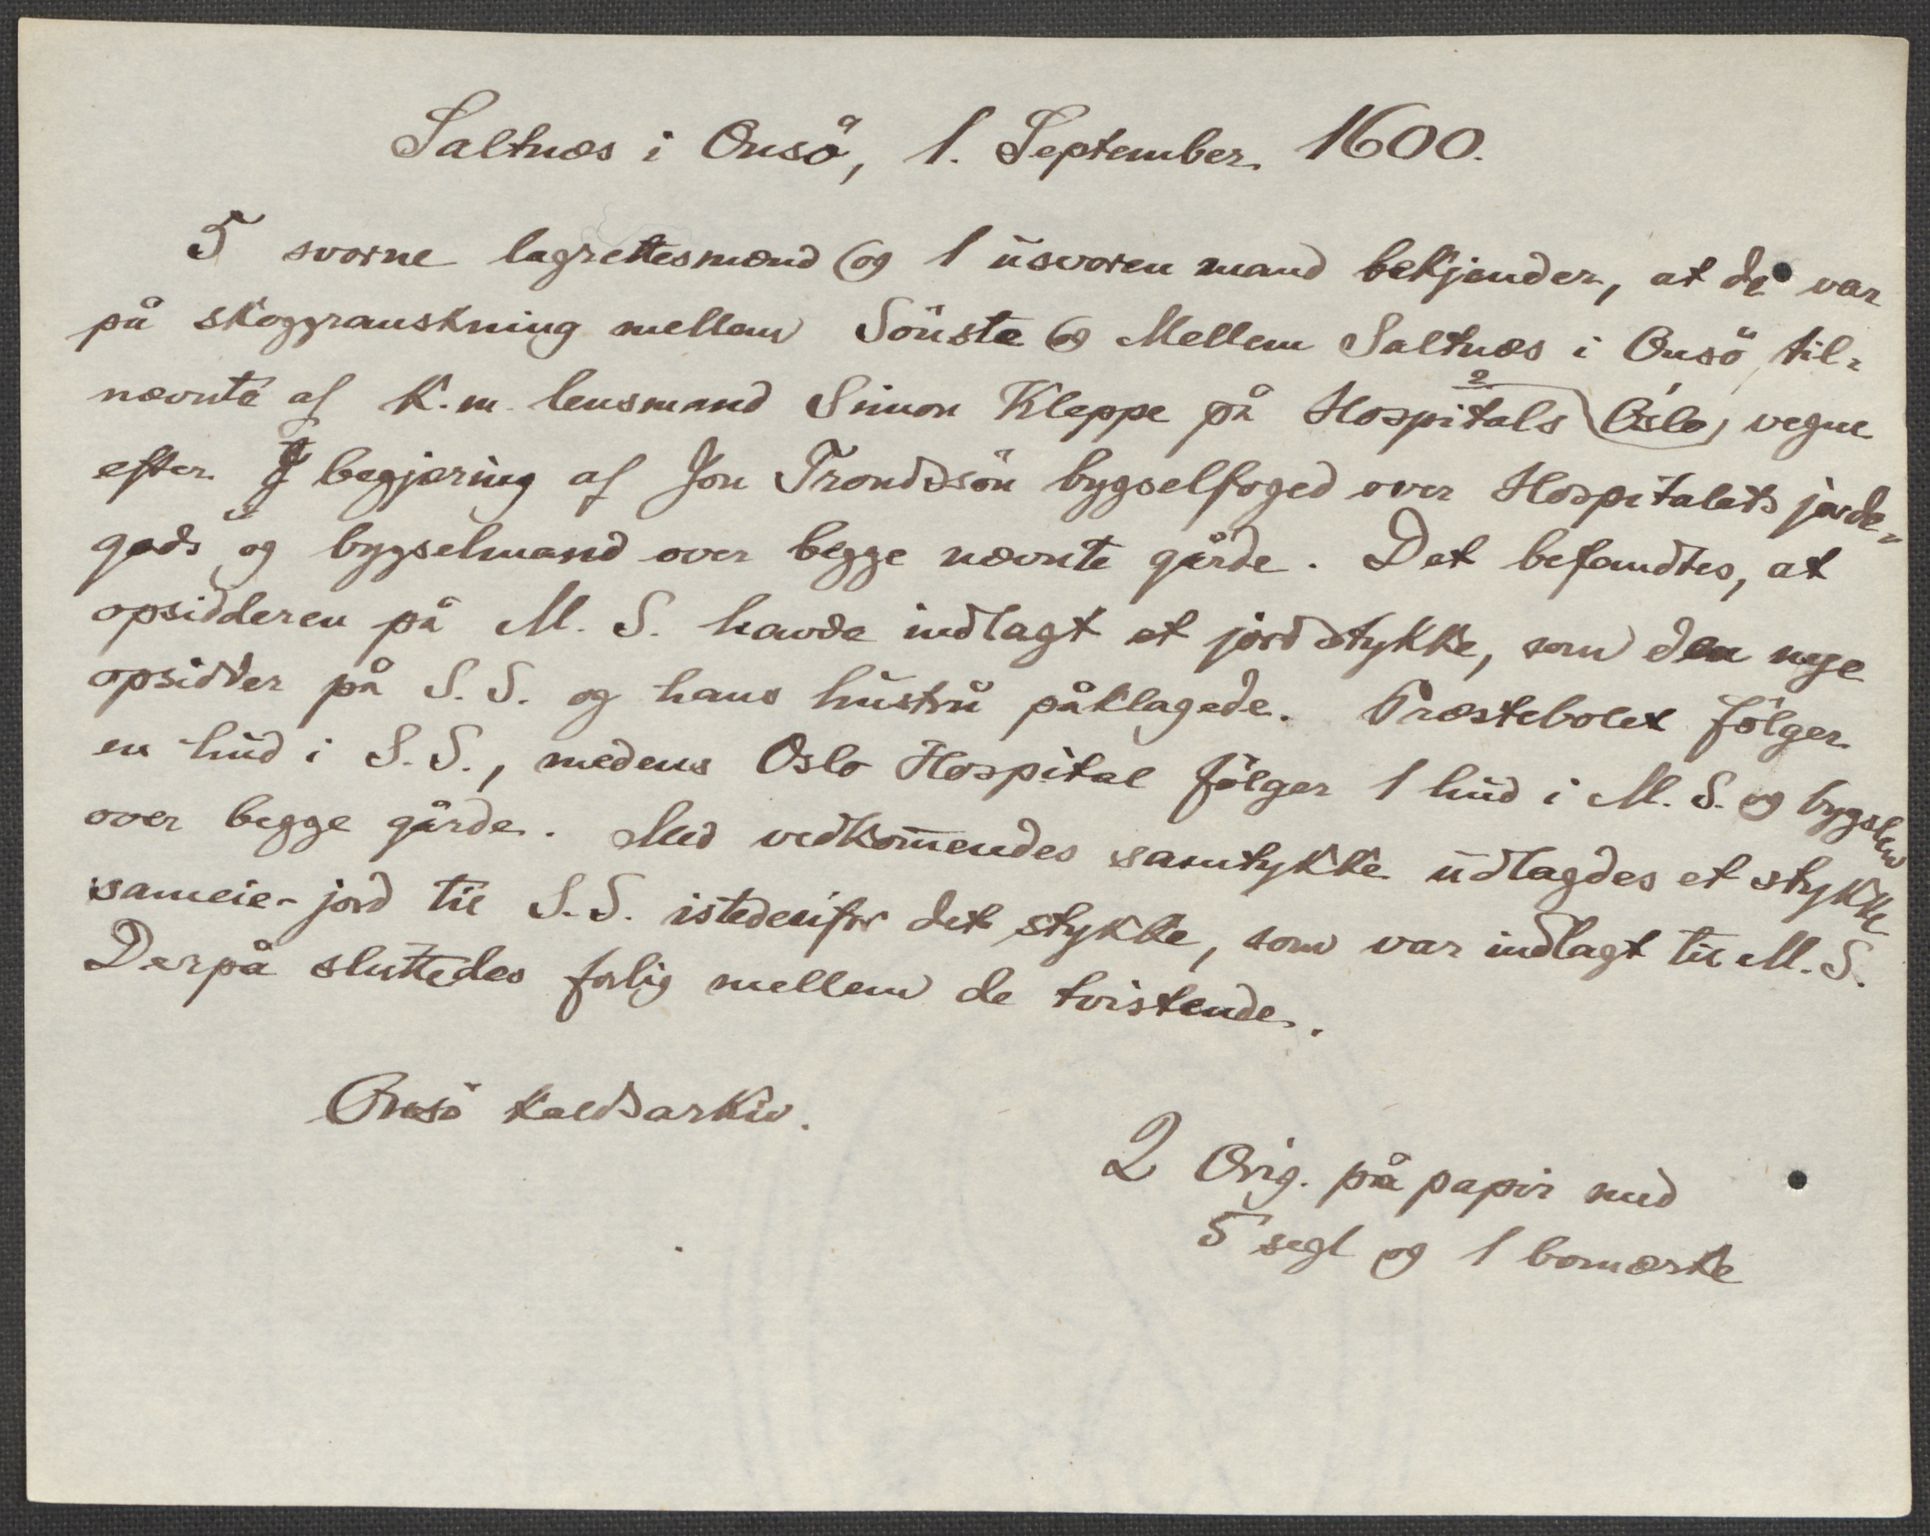 Saltnæs i Onsö, 1. September 1600.
5 svorne lagrettesmænd og 1 usvoren mand bekjender, at de var
på skoggranskning mellem Sönste og Mellem Saltnæs i Onsö, til-
nævnte af K. m. lensmand Simon Kleppe på Hospitals Oslo, vegne
efter begjæring af Jon Trondssön bygselfoged over Hospitalets jorde-
gods og bygselmand over begge nævnte gårde. Det befandtes, at
opsidderen på M. S. havde indlagt et jordstykke, som den nye
opsidder på S. S. og hans hustru påklagede. Præstebolet fölger
en hud i S. S., medens Oslo Hospital fölger 1 hud i M. S. og bygslen
over begge gårde. Med vedkom̄endes samtykke udlagdes et stykke
sameie-jord til S. S. istedenfor det stykke, som var indlagt til M. S.
Derpå sluttedes forlig mellem de tvistende.
Onsö kaldsarkiv.
2 Orig. på papir med
5 segl og 1 bomærke